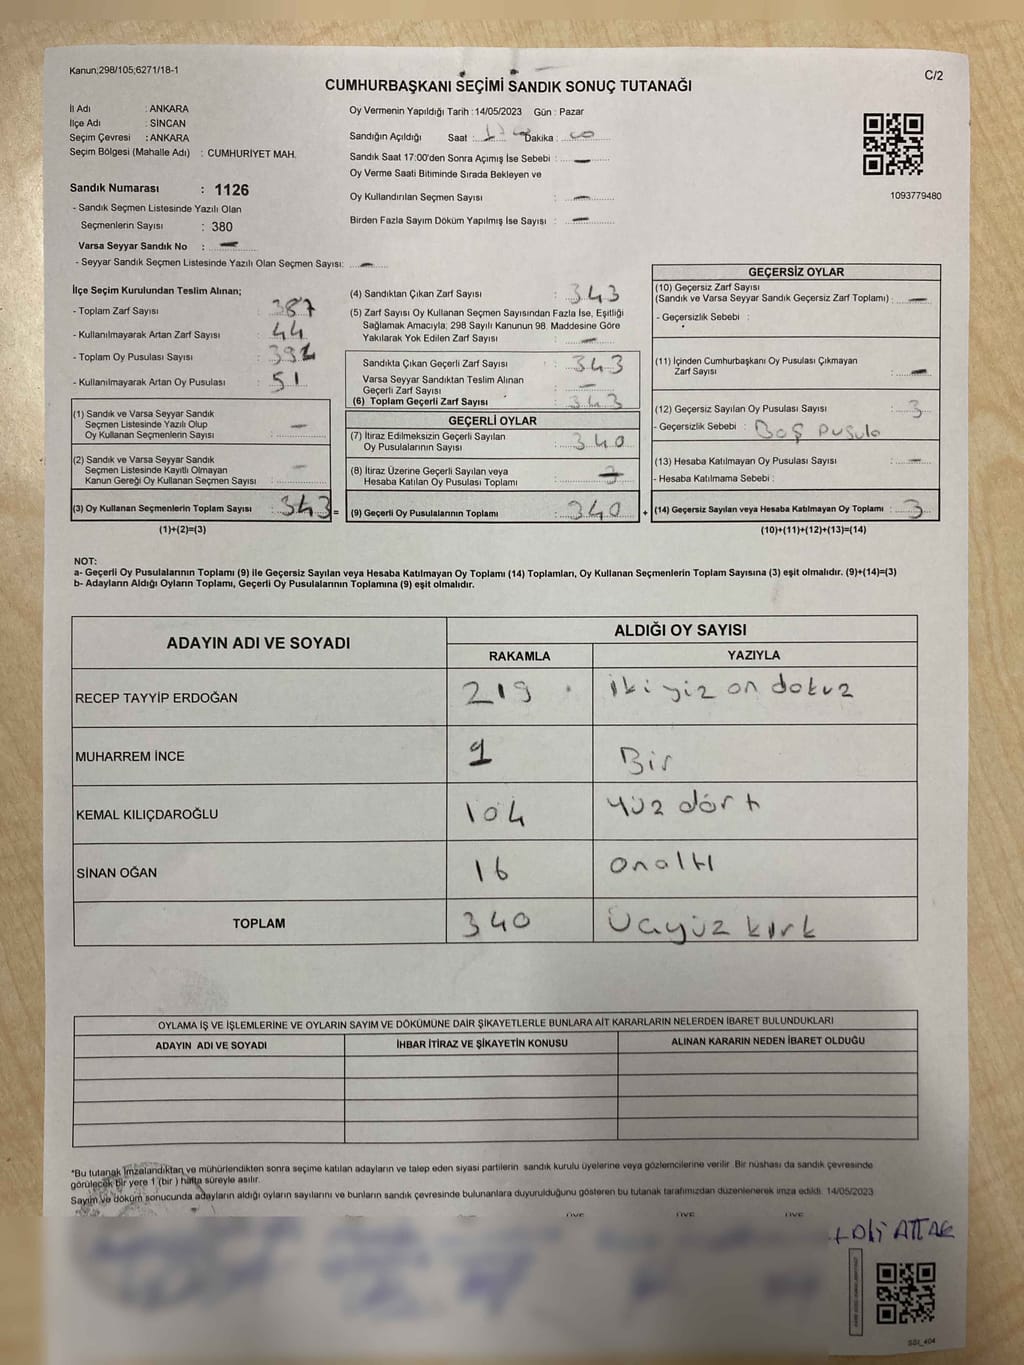 Kanun;298/105;6271/18-1
C/2
CUMHURBAŞKANI SEÇİMİ SANDIK SONUÇ TUTANAĞI
İl Adı : ANKARA
İlçe Adı : SİNCAN
Seçim Çevresi : ANKARA
Seçim Bölgesi (Mahalle Adı) : CUMHURİYET MAH.
Sandık Numarası : 1126
- Sandık Seçmen Listesinde Yazılı Olan
Seçmenlerin Sayısı : 380
Varsa Seyyar Sandık No : —
- Seyyar Sandık Seçmen Listesinde Yazılı Olan Seçmen Sayısı: —
Oy Vermenin Yapıldığı Tarih : 14/05/2023 Gün : Pazar
Sandığın Açıldığı Saat : Dakika :
Sandık Saat 17:00'den Sonra Açımış İse Sebebi : —
Oy Verme Saati Bitiminde Sırada Bekleyen ve
Oy Kullandırılan Seçmen Sayısı : —
Birden Fazla Sayım Döküm Yapılmış İse Sayısı : —
1093779480
İlçe Seçim Kurulundan Teslim Alınan;
- Toplam Zarf Sayısı : 387
- Kullanılmayarak Artan Zarf Sayısı : 44
- Toplam Oy Pusulası Sayısı :
- Kullanılmayarak Artan Oy Pusulası : 51
(1) Sandık ve Varsa Seyyar Sandık
Seçmen Listesinde Yazılı Olup
Oy Kullanan Seçmenlerin Sayısı : —
(2) Sandık ve Varsa Seyyar Sandık
Seçmen Listesinde Kayıtlı Olmayan
Kanun Gereği Oy Kullanan Seçmen Sayısı : —
(3) Oy Kullanan Seçmenlerin Toplam Sayısı : 343 =
(1)+(2)=(3)
(4) Sandıktan Çıkan Zarf Sayısı : 343
(5) Zarf Sayısı Oy Kullanan Seçmen Sayısından Fazla İse, Eşitliği
Sağlamak Amacıyla; 298 Sayılı Kanunun 98. Maddesine Göre
Yakılarak Yok Edilen Zarf Sayısı : —
Sandıkta Çıkan Geçerli Zarf Sayısı : 343
Varsa Seyyar Sandıktan Teslim Alınan
Geçerli Zarf Sayısı : —
(6) Toplam Geçerli Zarf Sayısı : 343
GEÇERLİ OYLAR
(7) İtiraz Edilmeksizin Geçerli Sayılan
Oy Pusulalarının Sayısı : 340
(8) İtiraz Üzerine Geçerli Sayılan veya
Hesaba Katılan Oy Pusulası Toplamı :
(9) Geçerli Oy Pusulalarının Toplamı : 340 +
GEÇERSİZ OYLAR
(10) Geçersiz Zarf Sayısı
(Sandık ve Varsa Seyyar Sandık Geçersiz Zarf Toplamı) : —
- Geçersizlik Sebebi :
(11) İçinden Cumhurbaşkanı Oy Pusulası Çıkmayan
Zarf Sayısı : —
(12) Geçersiz Sayılan Oy Pusulası Sayısı : 3
- Geçersizlik Sebebi : Boş pusula
(13) Hesaba Katılmayan Oy Pusulası Sayısı : —
- Hesaba Katılmama Sebebi :
(14) Geçersiz Sayılan veya Hesaba Katılmayan Oy Toplamı : 3
(10)+(11)+(12)+(13)=(14)
NOT:
a- Geçerli Oy Pusulalarının Toplamı (9) ile Geçersiz Sayılan veya Hesaba Katılmayan Oy Toplamı (14) Toplamları, Oy Kullanan Seçmenlerin Toplam Sayısına (3) eşit olmalıdır. (9)+(14)=(3)
b- Adayların Aldığı Oyların Toplamı, Geçerli Oy Pusulalarının Toplamına (9) eşit olmalıdır.
ADAYIN ADI VE SOYADI
ALDIĞI OY SAYISI
RAKAMLA YAZIYLA
RECEP TAYYİP ERDOĞAN 219 ikiyüz on dokuz
MUHARREM İNCE 1 Bir
KEMAL KILIÇDAROĞLU 104 yüz dört
SİNAN OĞAN 16 onaltı
TOPLAM 340 Üçyüz kırk
OYLAMA İŞ VE İŞLEMLERİNE VE OYLARIN SAYIM VE DÖKÜMÜNE DAİR ŞİKAYETLERLE BUNLARA AİT KARARLARIN NELERDEN İBARET BULUNDUKLARI
ADAYIN ADI VE SOYADI İHBAR İTİRAZ VE ŞİKAYETİN KONUSU ALINAN KARARIN NEDEN İBARET OLDUĞU
*Bu tutanak imzalandıktan ve mühürlendikten sonra seçime katılan adayların ve talep eden siyasi partilerin sandık kurulu üyelerine veya gözlemcilerine verilir. Bir nüshası da sandık çevresinde
görülecek bir yere 1 (bir ) hafta süreyle asılır.
Sayım ve döküm sonucunda adayların aldığı oyların sayılarını ve bunların sandık çevresinde bulunanlara duyurulduğunu gösteren bu tutanak tarafımızdan düzenlenerek imza edildi. 14/05/2023
ÜYE ÜYE ÜYE